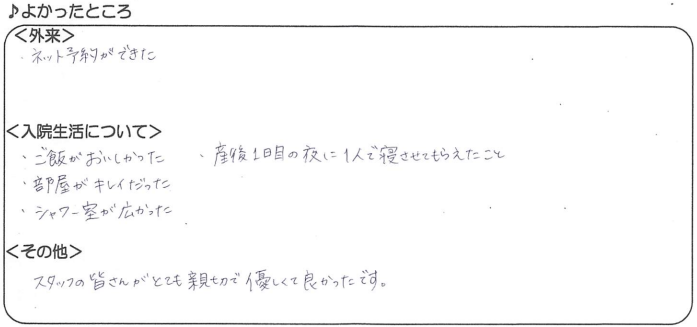 ♪よかったところ
＜外来＞
・ネット予約ができた
＜入院生活について＞
・ご飯がおいしかった ・産後1日目の夜に1人で寝させてもらえたこと
・部屋がキレイだった
・シャワー室が広かった
＜その他＞
スタッフの皆さんがとても親切で優しくて良かったです。